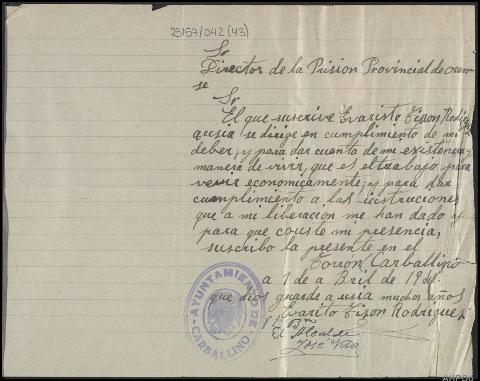 25157/042(43)
Sr
Director de la Prision Provincial de oren
se
Sr
El que suscrive Evaristo Tizon Rodrigez
a usia se dirige en cumplimiento de mi
deber; y para dar cuenta de mi existencia y
manera de vivir, que es el trabajo para
venir economicamente; y para dar
cumplimiento a las instruciones
que a mi liberacion me han dado y
para que conste mi presencia,
suscribo la presente en el
Torron Carballino
a 1 de a Bril de
que dios guarde a usia muchos años
Evarito Tizon Rodriguez
El Alcalde
José
AYUNTAMIENTO DE
CARBALLINO